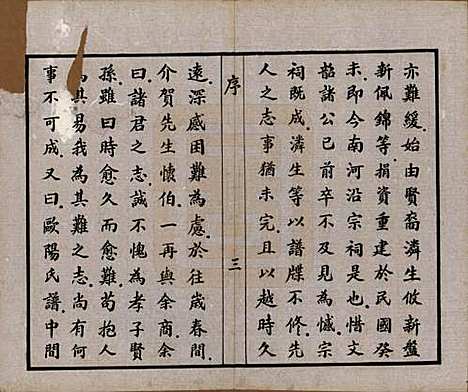 亦難緩始由賢裔濟生攸新盤
新佩錦等捐資重建於民國癸
未即今南河沿宗祠是也惜文
韶諸公已前卒不及見為憾宗
祠既成濟生等以譜牒不修先
人之志事猶未完且以越時久
序
三
遠深感困難為慮於往歲春間
介賀先生懷伯一再與余商余
曰諸君之志誠不愧為孝子賢
孫雖曰時愈久而愈難苟抱人
為其易我為其難之志尚有何
事不可成又曰歐陽氏譜中間